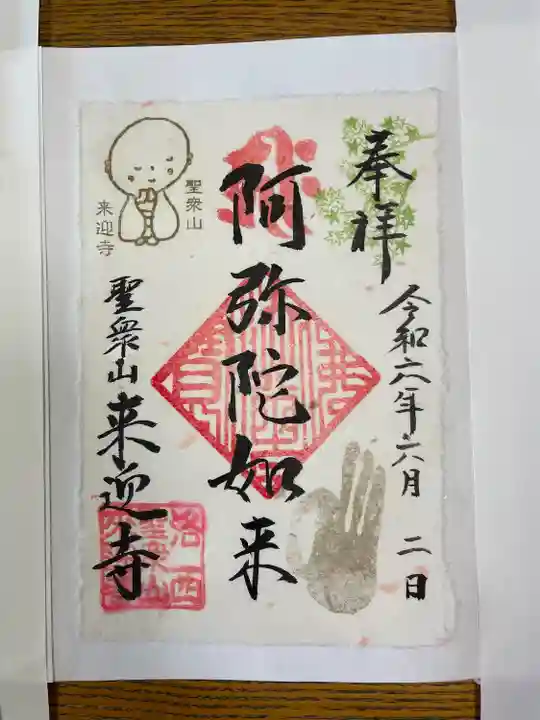 奉拝
令和六年六月二日
阿弥陀如来
聖衆山
来迎寺
聖衆山来迎寺